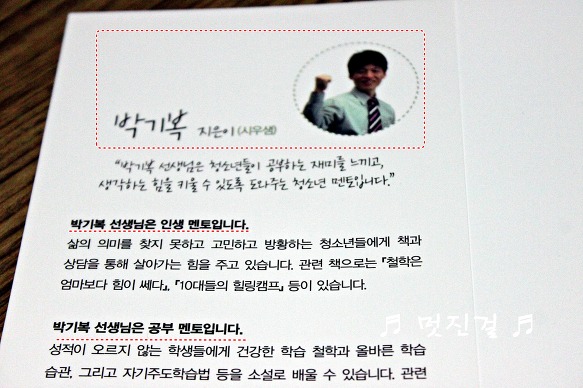 박기복 지은이 (시우쌤)
“박기복 선생님은 청소년들이 공부하는 재미를 느끼고,
생각하는 힘을 키울 수 있도록 도와주는 청소년 멘토입니다.”
박기복 선생님은 인생 멘토입니다.
삶의 의미를 찾지 못하고 고민하고 방황하는 청소년들에게 책과
상담을 통해 살아가는 힘을 주고 있습니다. 관련 책으로는 『철학은
엄마보다 힘이 쎄다』, 『10대들의 힐링캠프』 등이 있습니다.
박기복 선생님은 공부 멘토입니다.
성적이 오르지 않는 학생들에게 건강한 학습 철학과 올바른 학습
습관, 그리고 자기주도학습법 등을 소설로 배울 수 있습니다. 관련
♬ 멋진걸 ♬